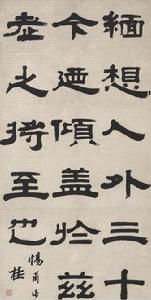 緬想人外三十
今迺傾盖於兹
老之將至也
惕甫
桂